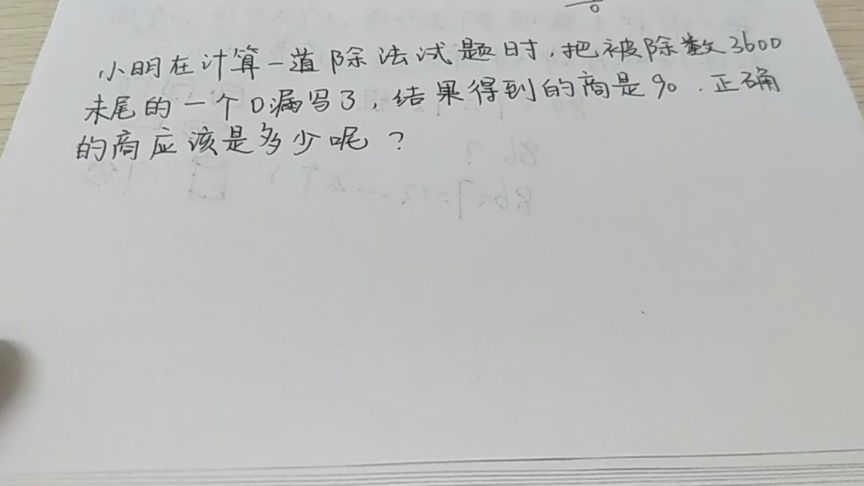 小明在计算一道除法试题时,把被除数3600
末尾的一个0漏写了,结果得到的商是90.正确
的商应该是多少呢?